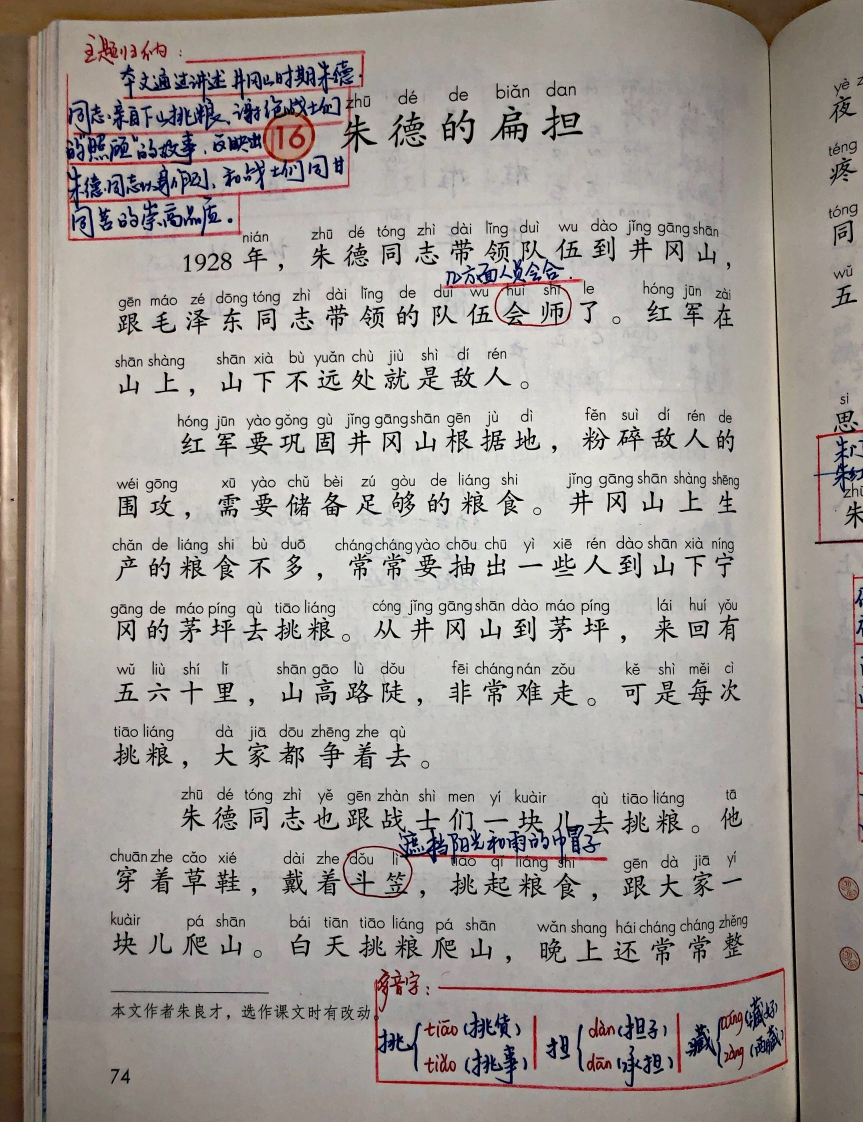 主题归纳：
本文通过讲述井冈山时期朱德
同志亲自下山挑粮、谢绝战士们
的“照顾”的故事，反映出
朱德同志以身作则、和战士们同甘
同苦的崇高品质。
zhū dé de biǎn dan
16 朱德的扁担
nián zhū dé tóng zhì dài lǐng duì wu dào jǐng gāng shān
1928年，朱德同志带领队伍到井冈山，
几方面人员会合
gēn máo zé dōng tóng zhì dài lǐng de duì wu huì shī le hóng jūn zài
跟毛泽东同志带领的队伍会师了。红军在
shān shàng shān xià bù yuǎn chù jiù shì dí rén
山上，山下不远处就是敌人。
hóng jūn yào gǒng gù jǐng gāng shān gēn jù dì fěn suì dí rén de
红军要巩固井冈山根据地，粉碎敌人的
wéi gōng xū yào chǔ bèi zú gòu de liáng shi jǐng gāng shān shàng shēng
围攻，需要储备足够的粮食。井冈山上生
chǎn de liáng shi bù duō cháng cháng yào chōu chū yì xiē rén dào shān xià níng
产的粮食不多，常常要抽出一些人到山下宁
gāng de máo píng qù tiāo liáng cóng jǐng gāng shān dào máo píng lái huí yǒu
冈的茅坪去挑粮。从井冈山到茅坪，来回有
wǔ liù shí lǐ shān gāo lù dǒu fēi cháng nán zǒu kě shì měi cì
五六十里，山高路陡，非常难走。可是每次
tiāo liáng dà jiā dōu zhēng zhe qù
挑粮，大家都争着去。
zhū dé tóng zhì yě gēn zhàn shì men yí kuàir qù tiāo liáng tā
朱德同志也跟战士们一块儿去挑粮。他
遮挡阳光和雨的巾帽子
chuān zhe cǎo xié dài zhe dǒu lì tiāo qǐ liáng shi gēn dà jiā yí
穿着草鞋，戴着斗笠，挑起粮食，跟大家一
kuàir pá shān bái tiān tiāo liáng pá shān wǎn shang hái cháng cháng zhěng
块儿爬山。白天挑粮爬山，晚上还常常整
本文作者朱良才，选作课文时有改动。
多音字：
挑 tiāo（挑货） 担 dàn（担子） 藏 cáng（藏好）
tiǎo（挑事） dān（承担） zàng（西藏）
74
yè
夜
téng
疼
tóng
同
wǔ
五
si
思
zhū
朱